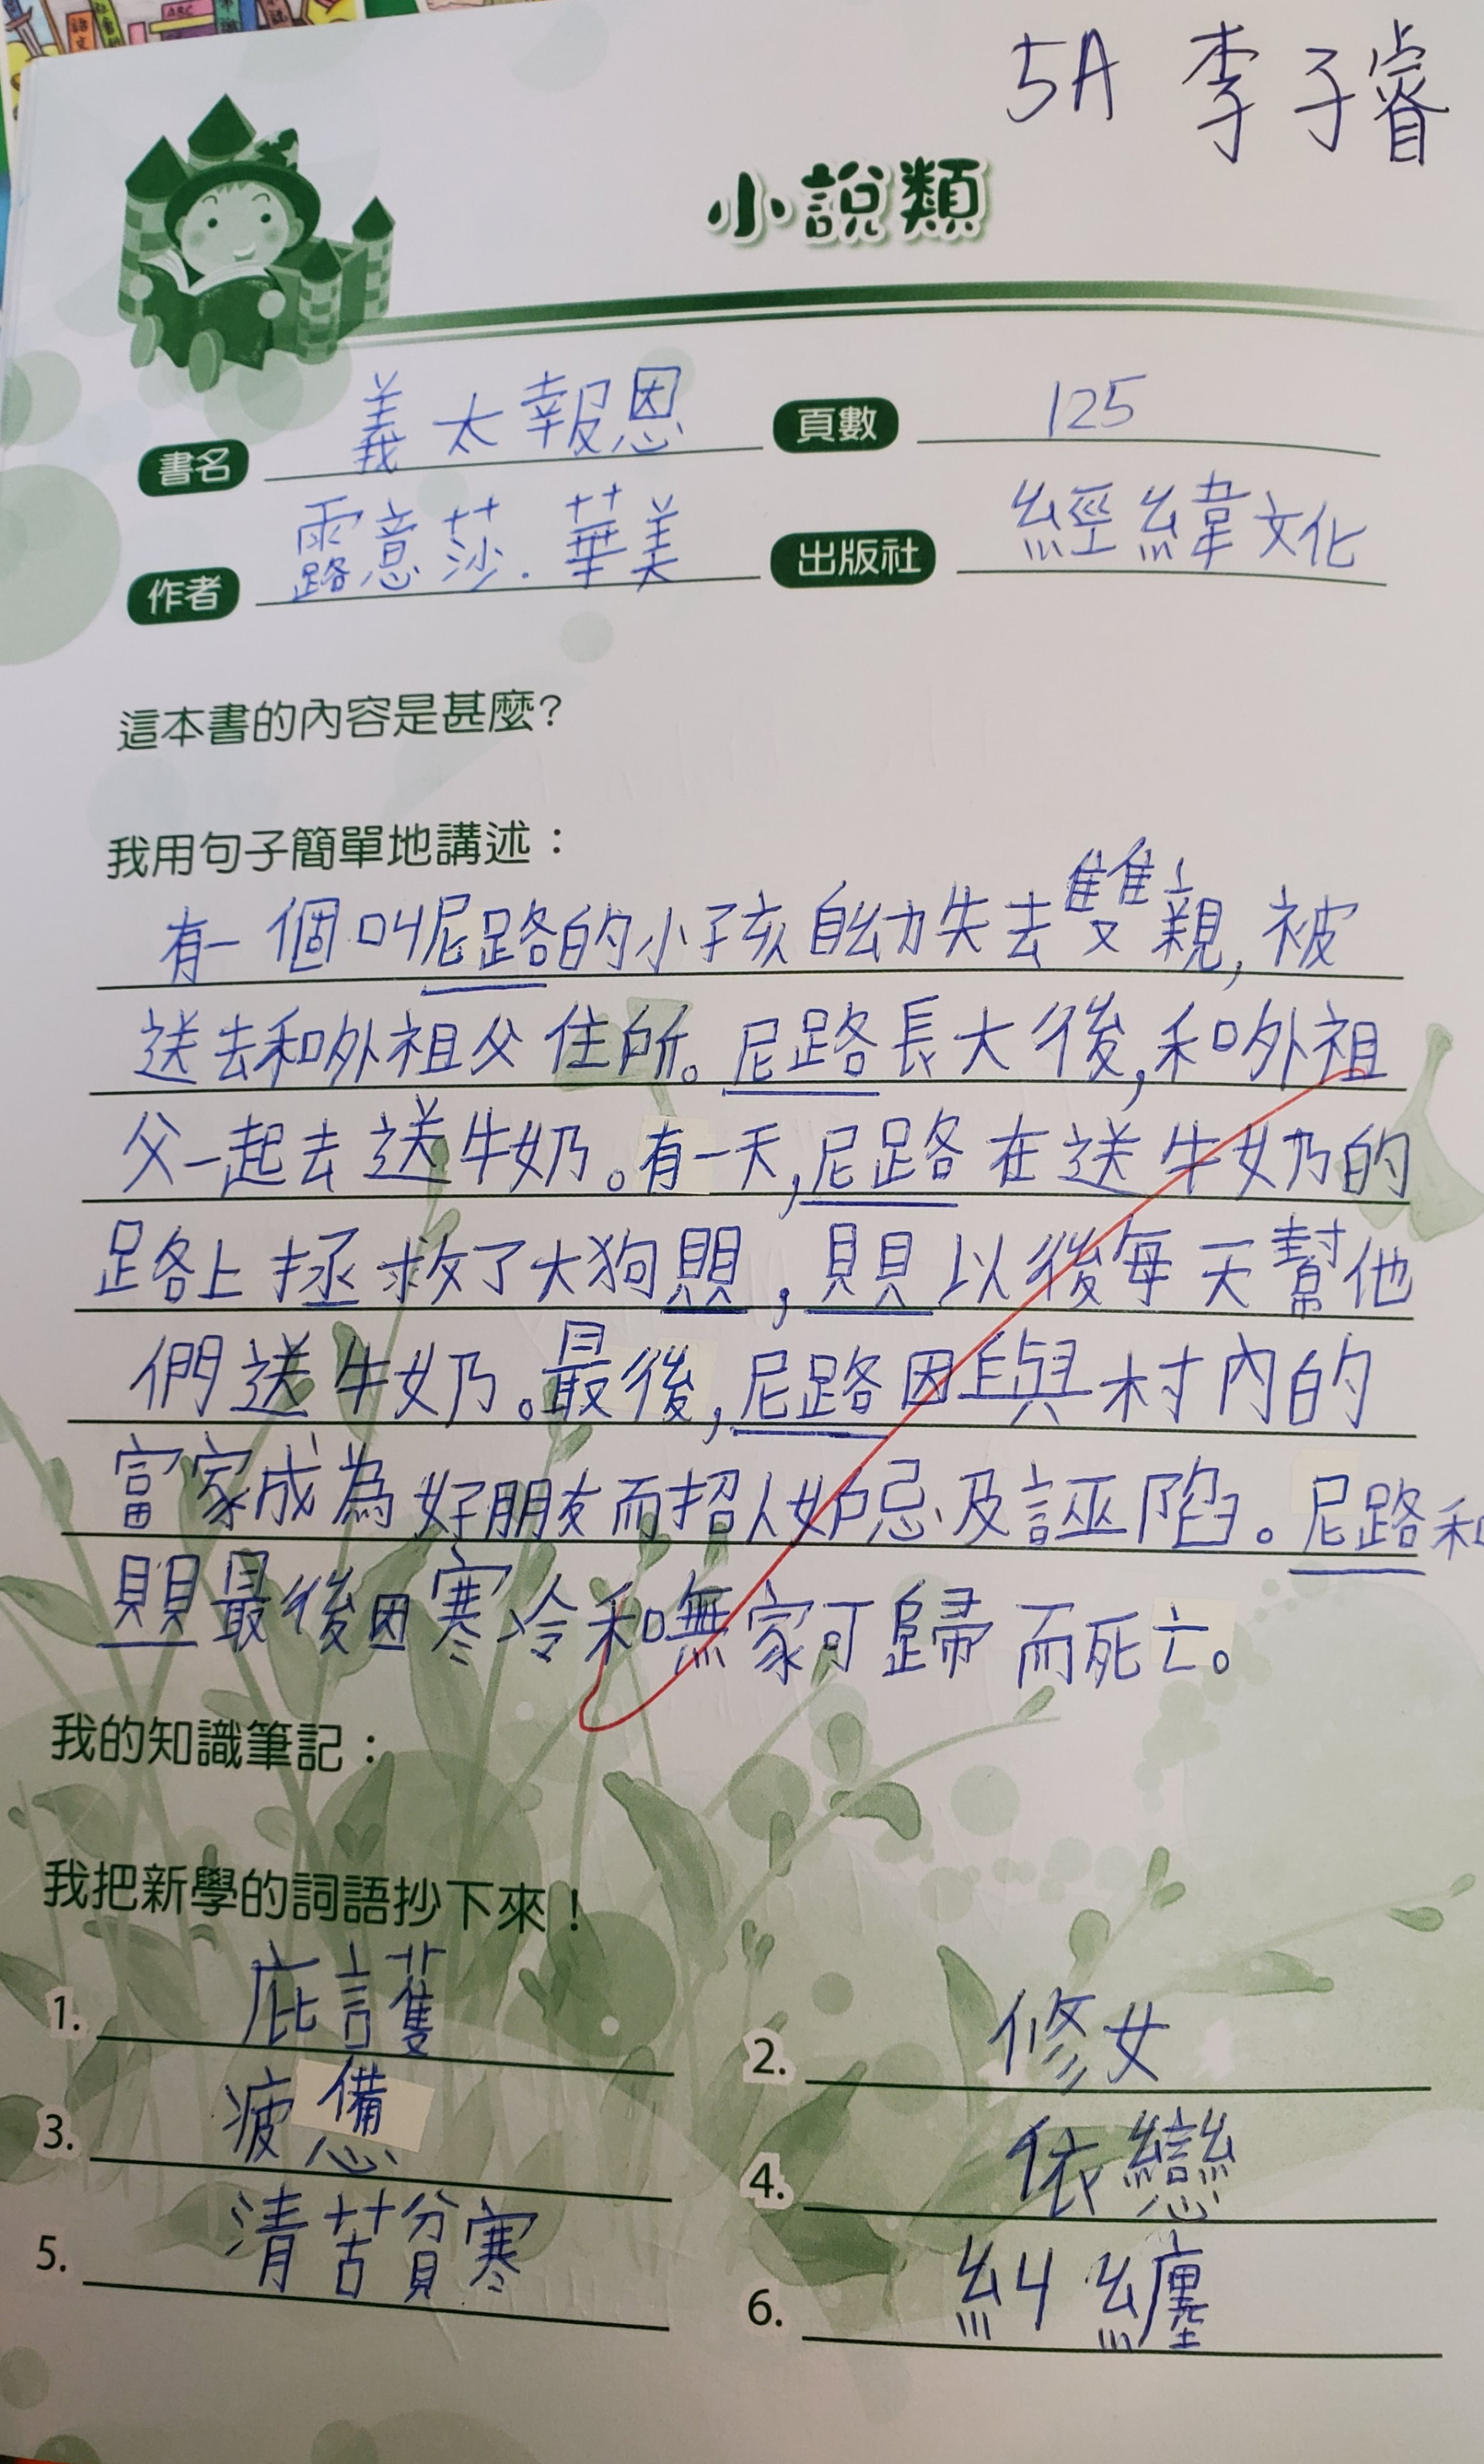 5A 李子睿
小說類
書名 義太報恩 頁數 125
作者 露意莎．華美 出版社 經緯文化
這本書的內容是甚麼?
我用句子簡單地講述：
有一個叫尼路的小孩自幼失去雙親，被
送去和外祖父住所。尼路長大後，和外祖
父一起去送牛奶。有一天，尼路在送牛奶的
路上拯救了大狗賏，賏以後每天幫他
們送牛奶。最後，尼路因與村內的
富家成為好朋友而招人妒忌及誣陷。尼路和
賏最後因寒冷和無家可歸而死亡。
我的知識筆記：
我把新學的詞語抄下來！
1. 庇護
2. 修女
3. 疲憊
4. 依戀
5. 清苦貧寒
6. 糾纏